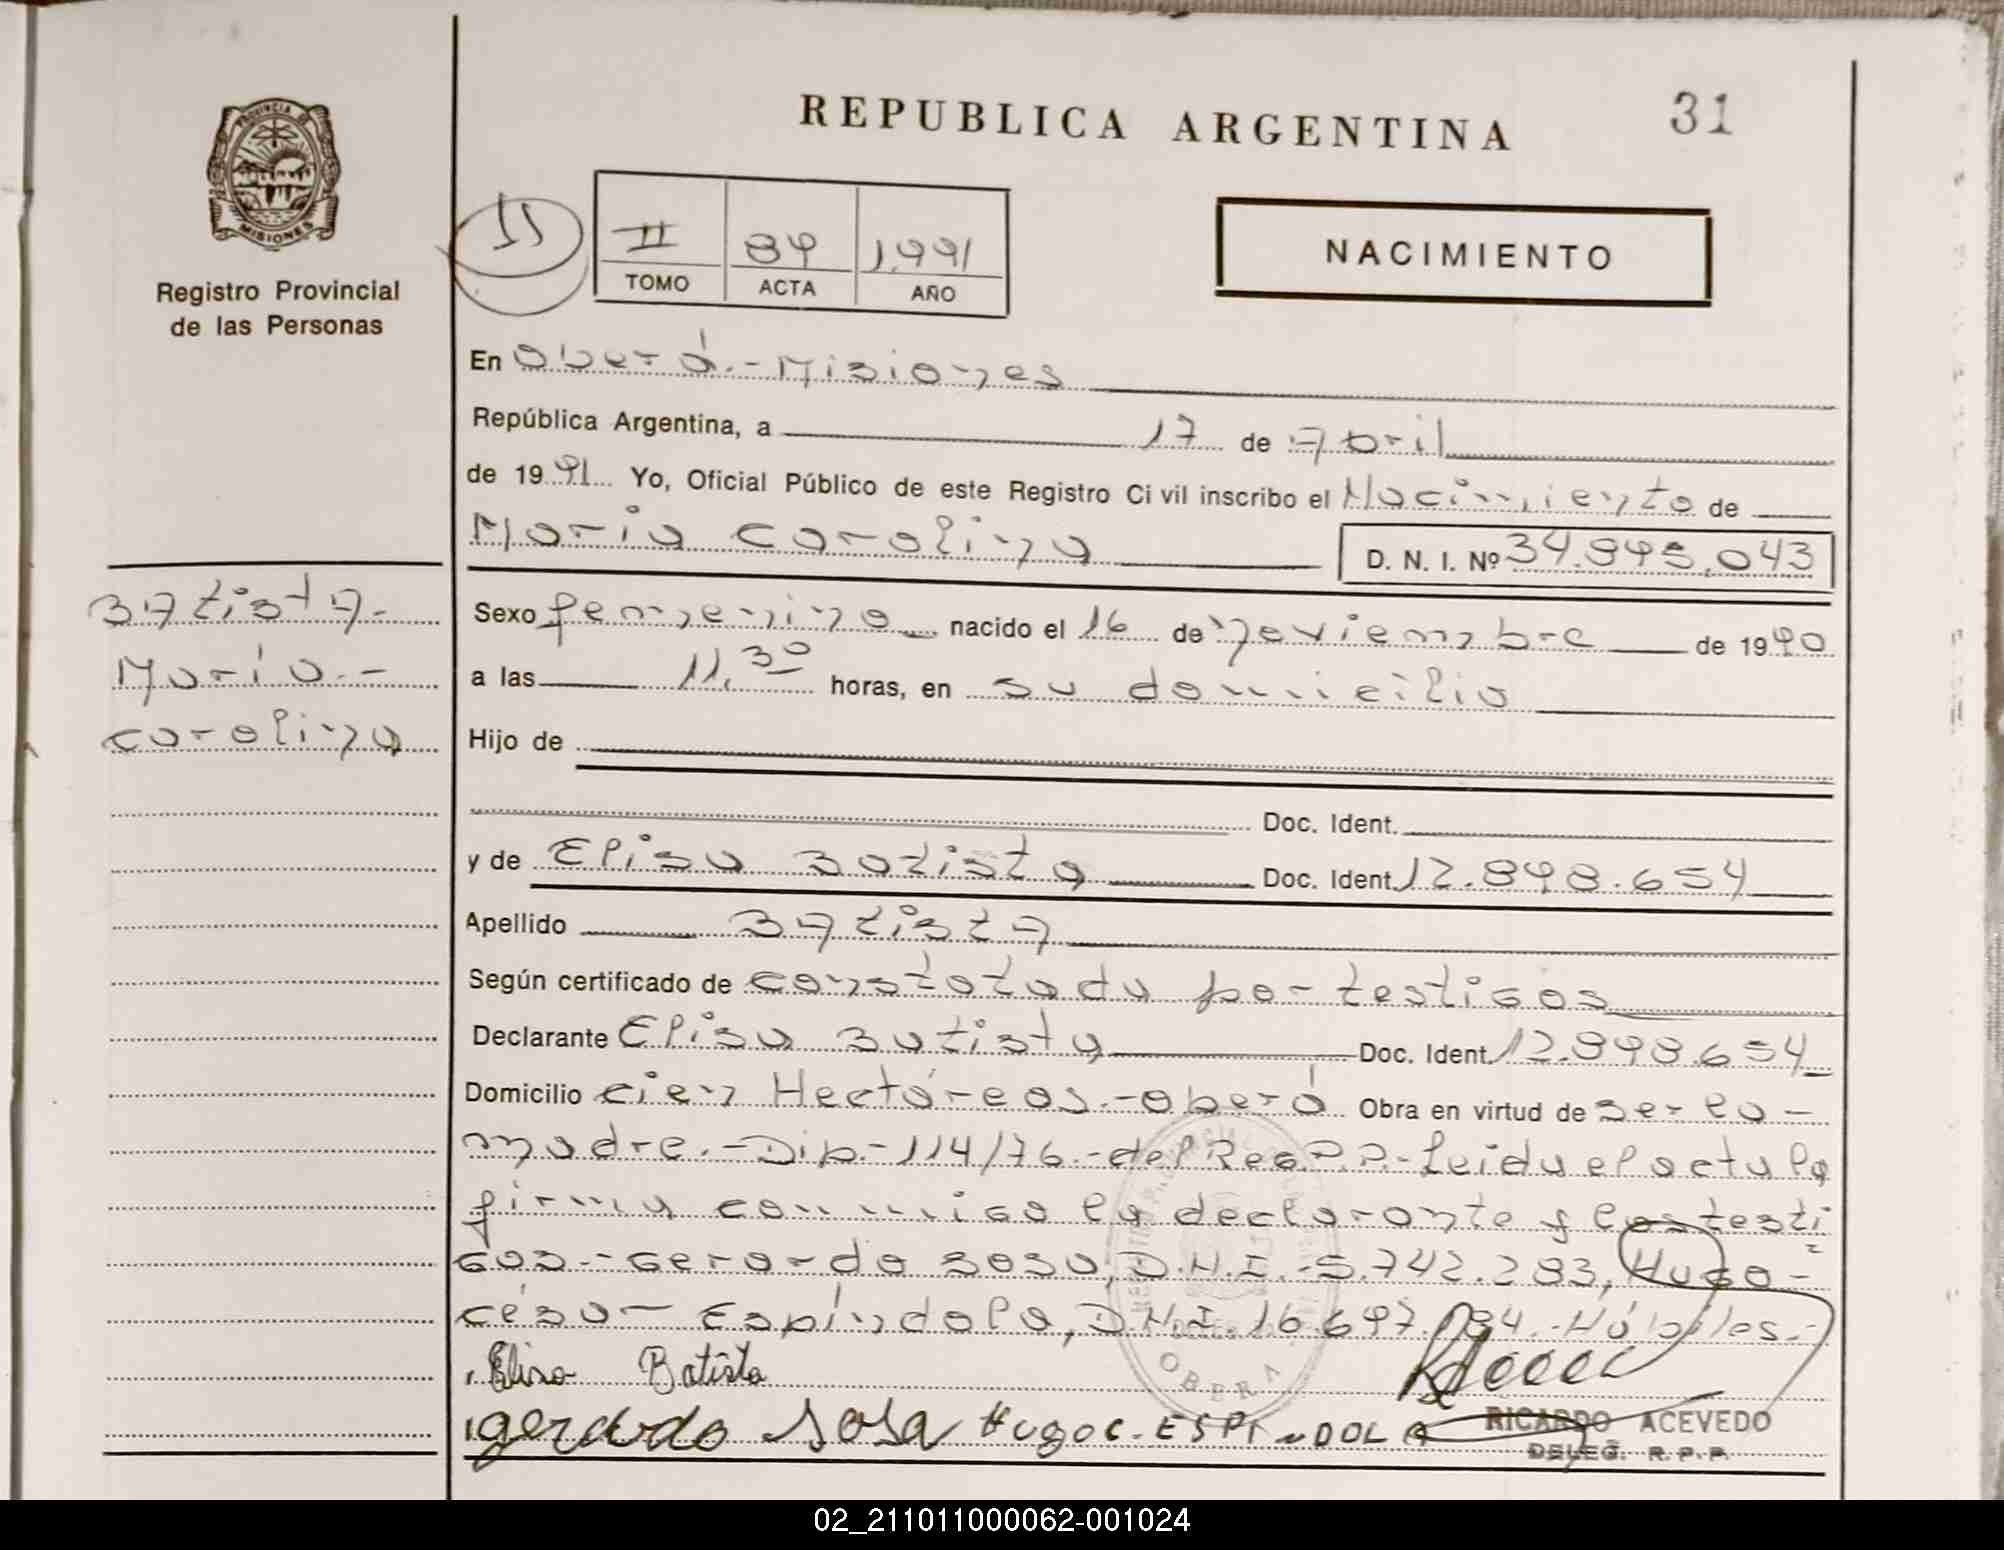 REPUBLICA ARGENTINA
31
PROVINCIA DE
MISIONES
Registro Provincial
de las Personas
II 84 1.991
TOMO ACTA AÑO
NACIMIENTO
En Oberá.- Misiones
República Argentina, a 17 de Abril
de 1991 Yo, Oficial Público de este Registro Civil inscribo el Nacimiento de
María Carolina D. N. I. Nº 34.895.043
BATISTA.-
María.-
Carolina
Sexo femenino nacido el 16 de Noviembre de 1990
a las 11,30 horas, en su domicilio
Hijo de
Doc. Ident.
y de Elisa Batista Doc. Ident. 12.898.654
Apellido BATISTA
Según certificado de constatada por testigos
Declarante Elisa Batista Doc. Ident. 12.898.654
Domicilio cien Hectáreas.- Oberá Obra en virtud de ser la
madre.- Dip.- 114/76.- del Reg.P.P.- Leida el acta la
firma conmigo la declarante y los testi
gos.- Gerardo Sosa, D.N.I. 5.742.283, Hugo
César Espíndola, D.N.I. 16.697. Hábiles.-
Elisa Batista
gerardo Sosa Hugo C. ESPINDOLA
OBERA
RICARDO ACEVEDO
DELEG. R.P.P.
02_211011000062-001024